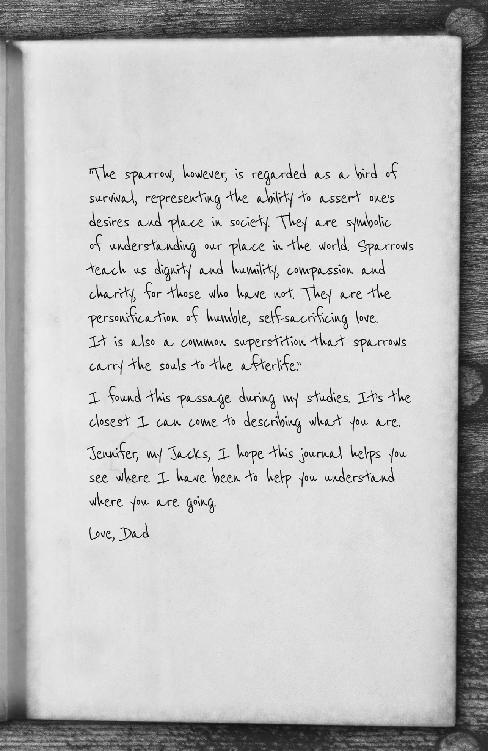 "The sparrow, however, is regarded as a bird of
survival, representing the ability to assert one's
desires and place in society. They are symbolic
of understanding our place in the world. Sparrows
teach us dignity and humility, compassion and
charity, for those who have not. They are the
personification of humble, self-sacrificing love.
It is also a common superstition that sparrows
carry the souls to the afterlife."
I found this passage during my studies. It's the
closest I can come to describing what you are.
Jennifer, my Jacks, I hope this journal helps you
see where I have been to help you understand
where you are going.
Love, Dad